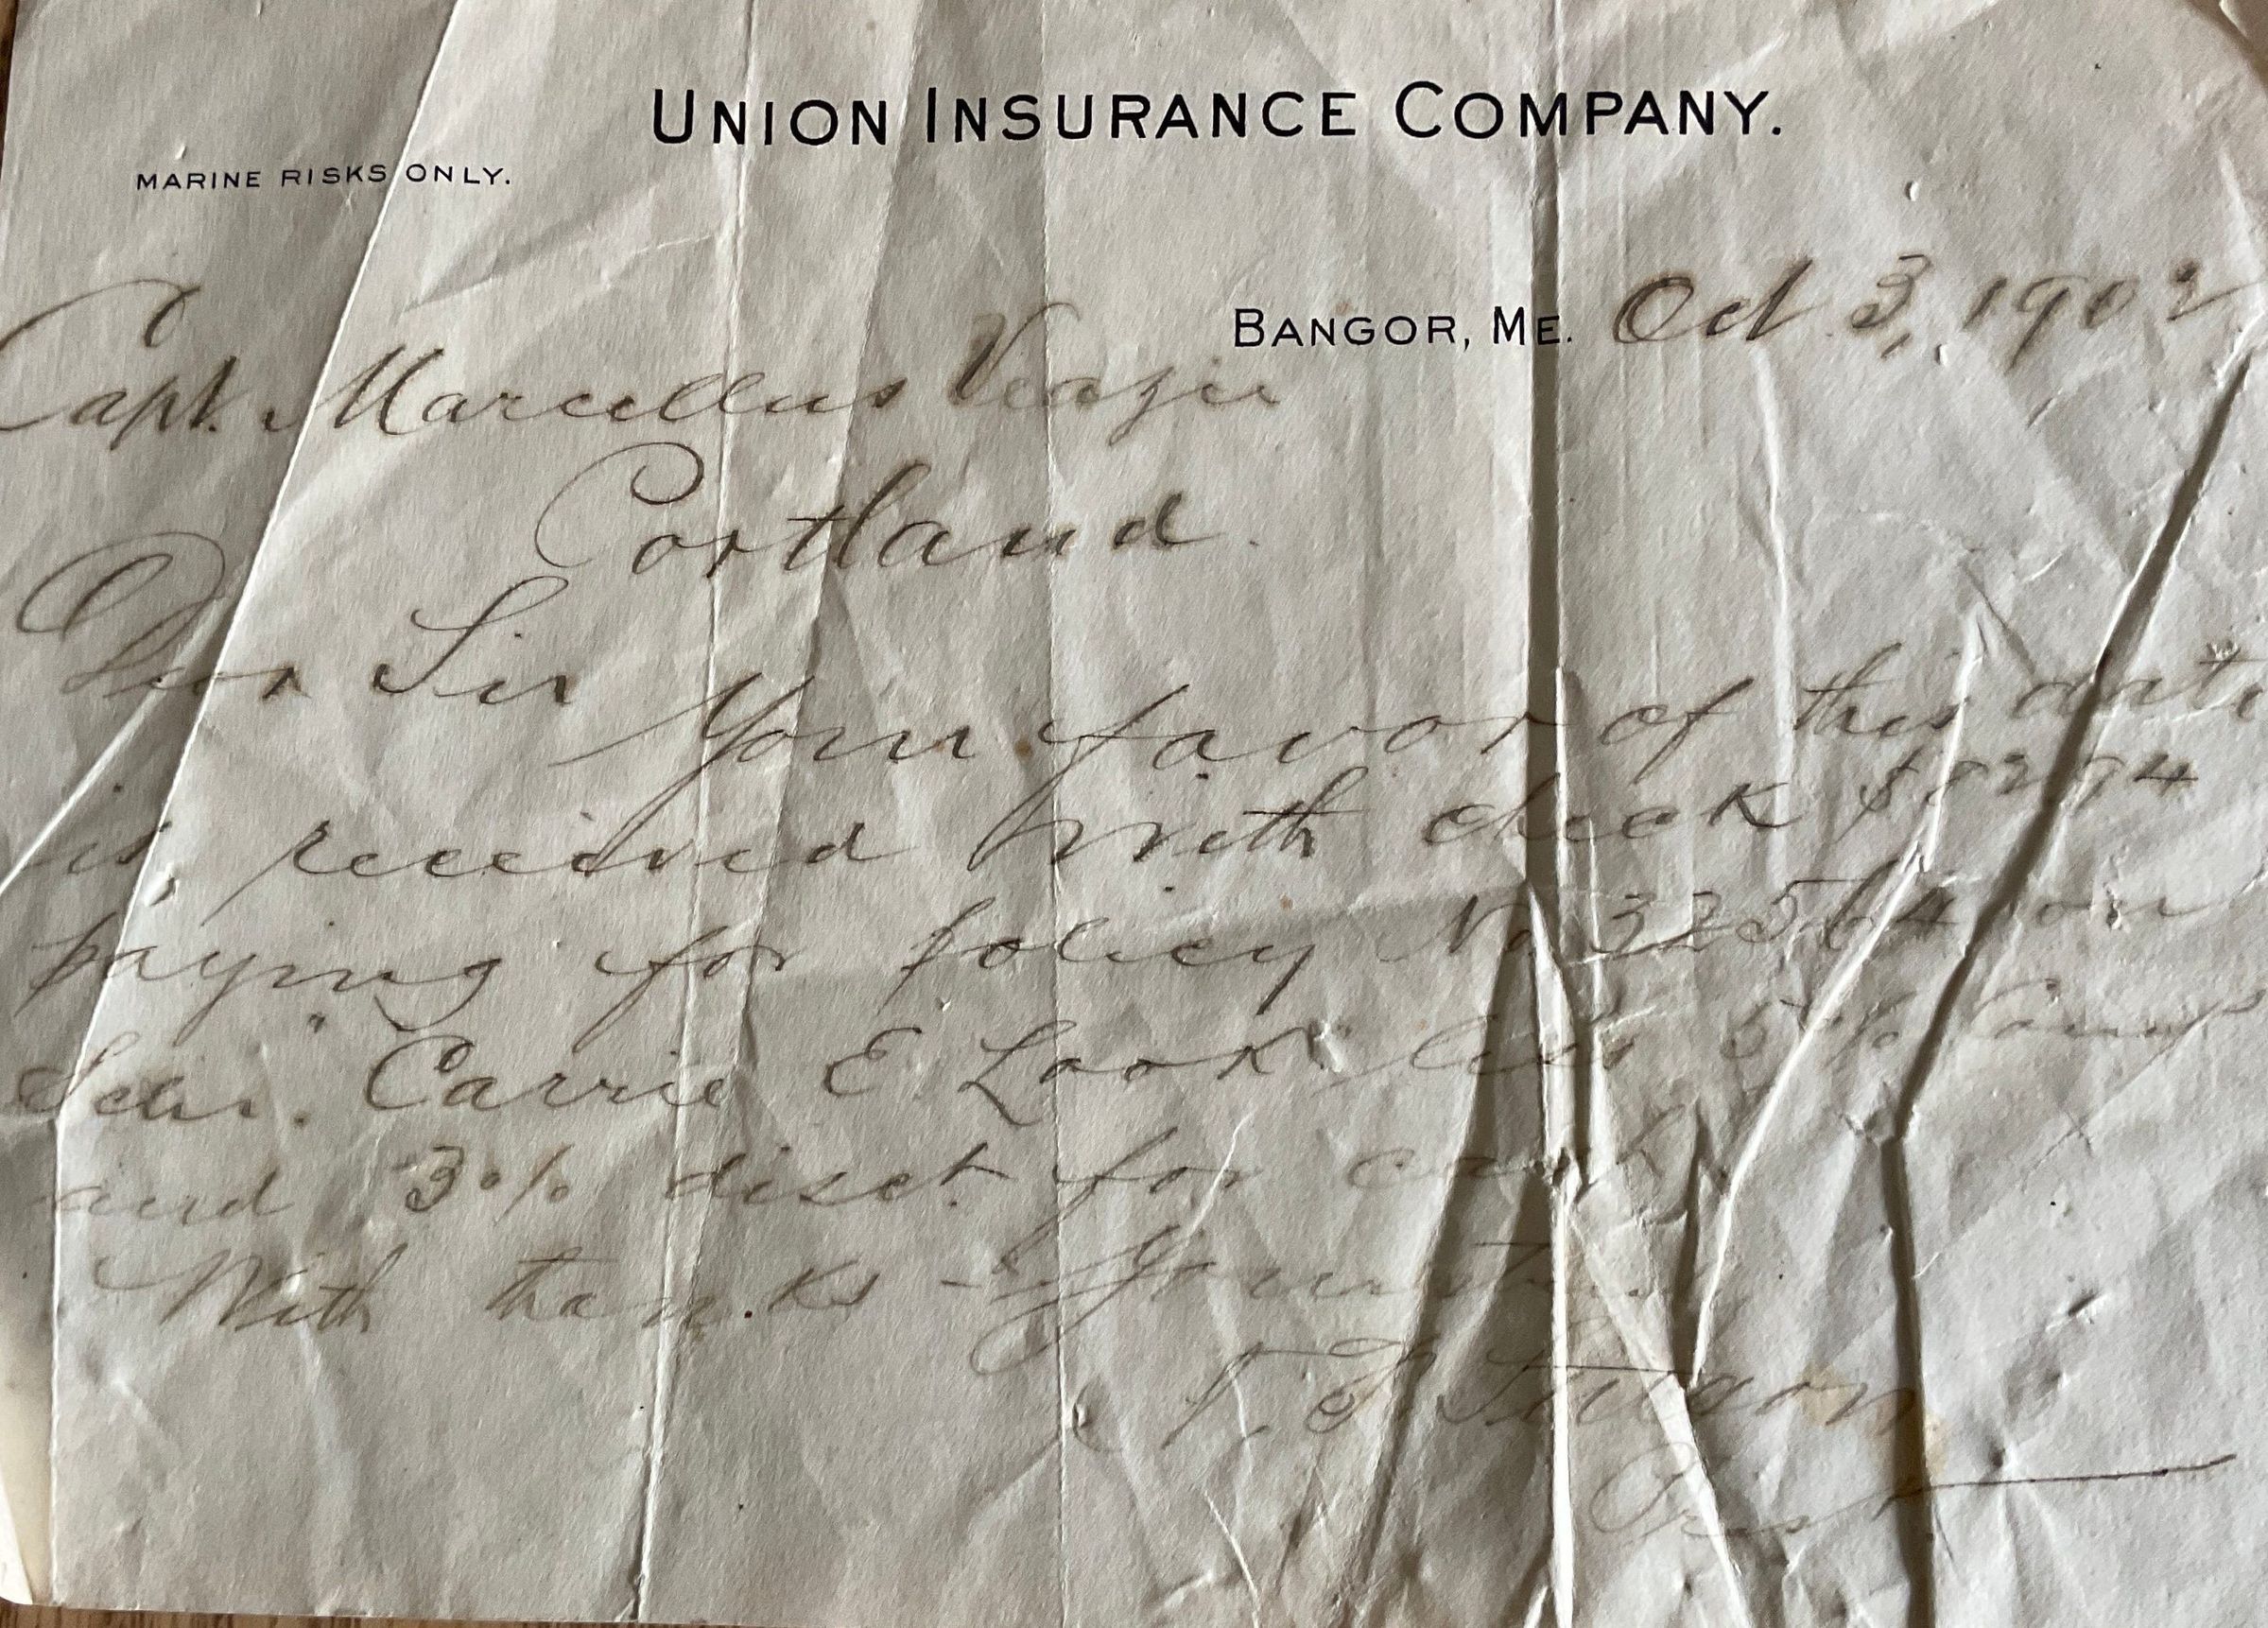 UNION INSURANCE COMPANY.
MARINE RISKS ONLY.
BANGOR, ME. Oct 3, 1902
Capt. Marcellus Veazie
Portland.
Dear Sir
Your favor of this date
is received with check
paying for policy No 32564 on
Schr. "Carrie E Look" less 5% Comp
and 3% disct. for cash
With thanks - Yours truly